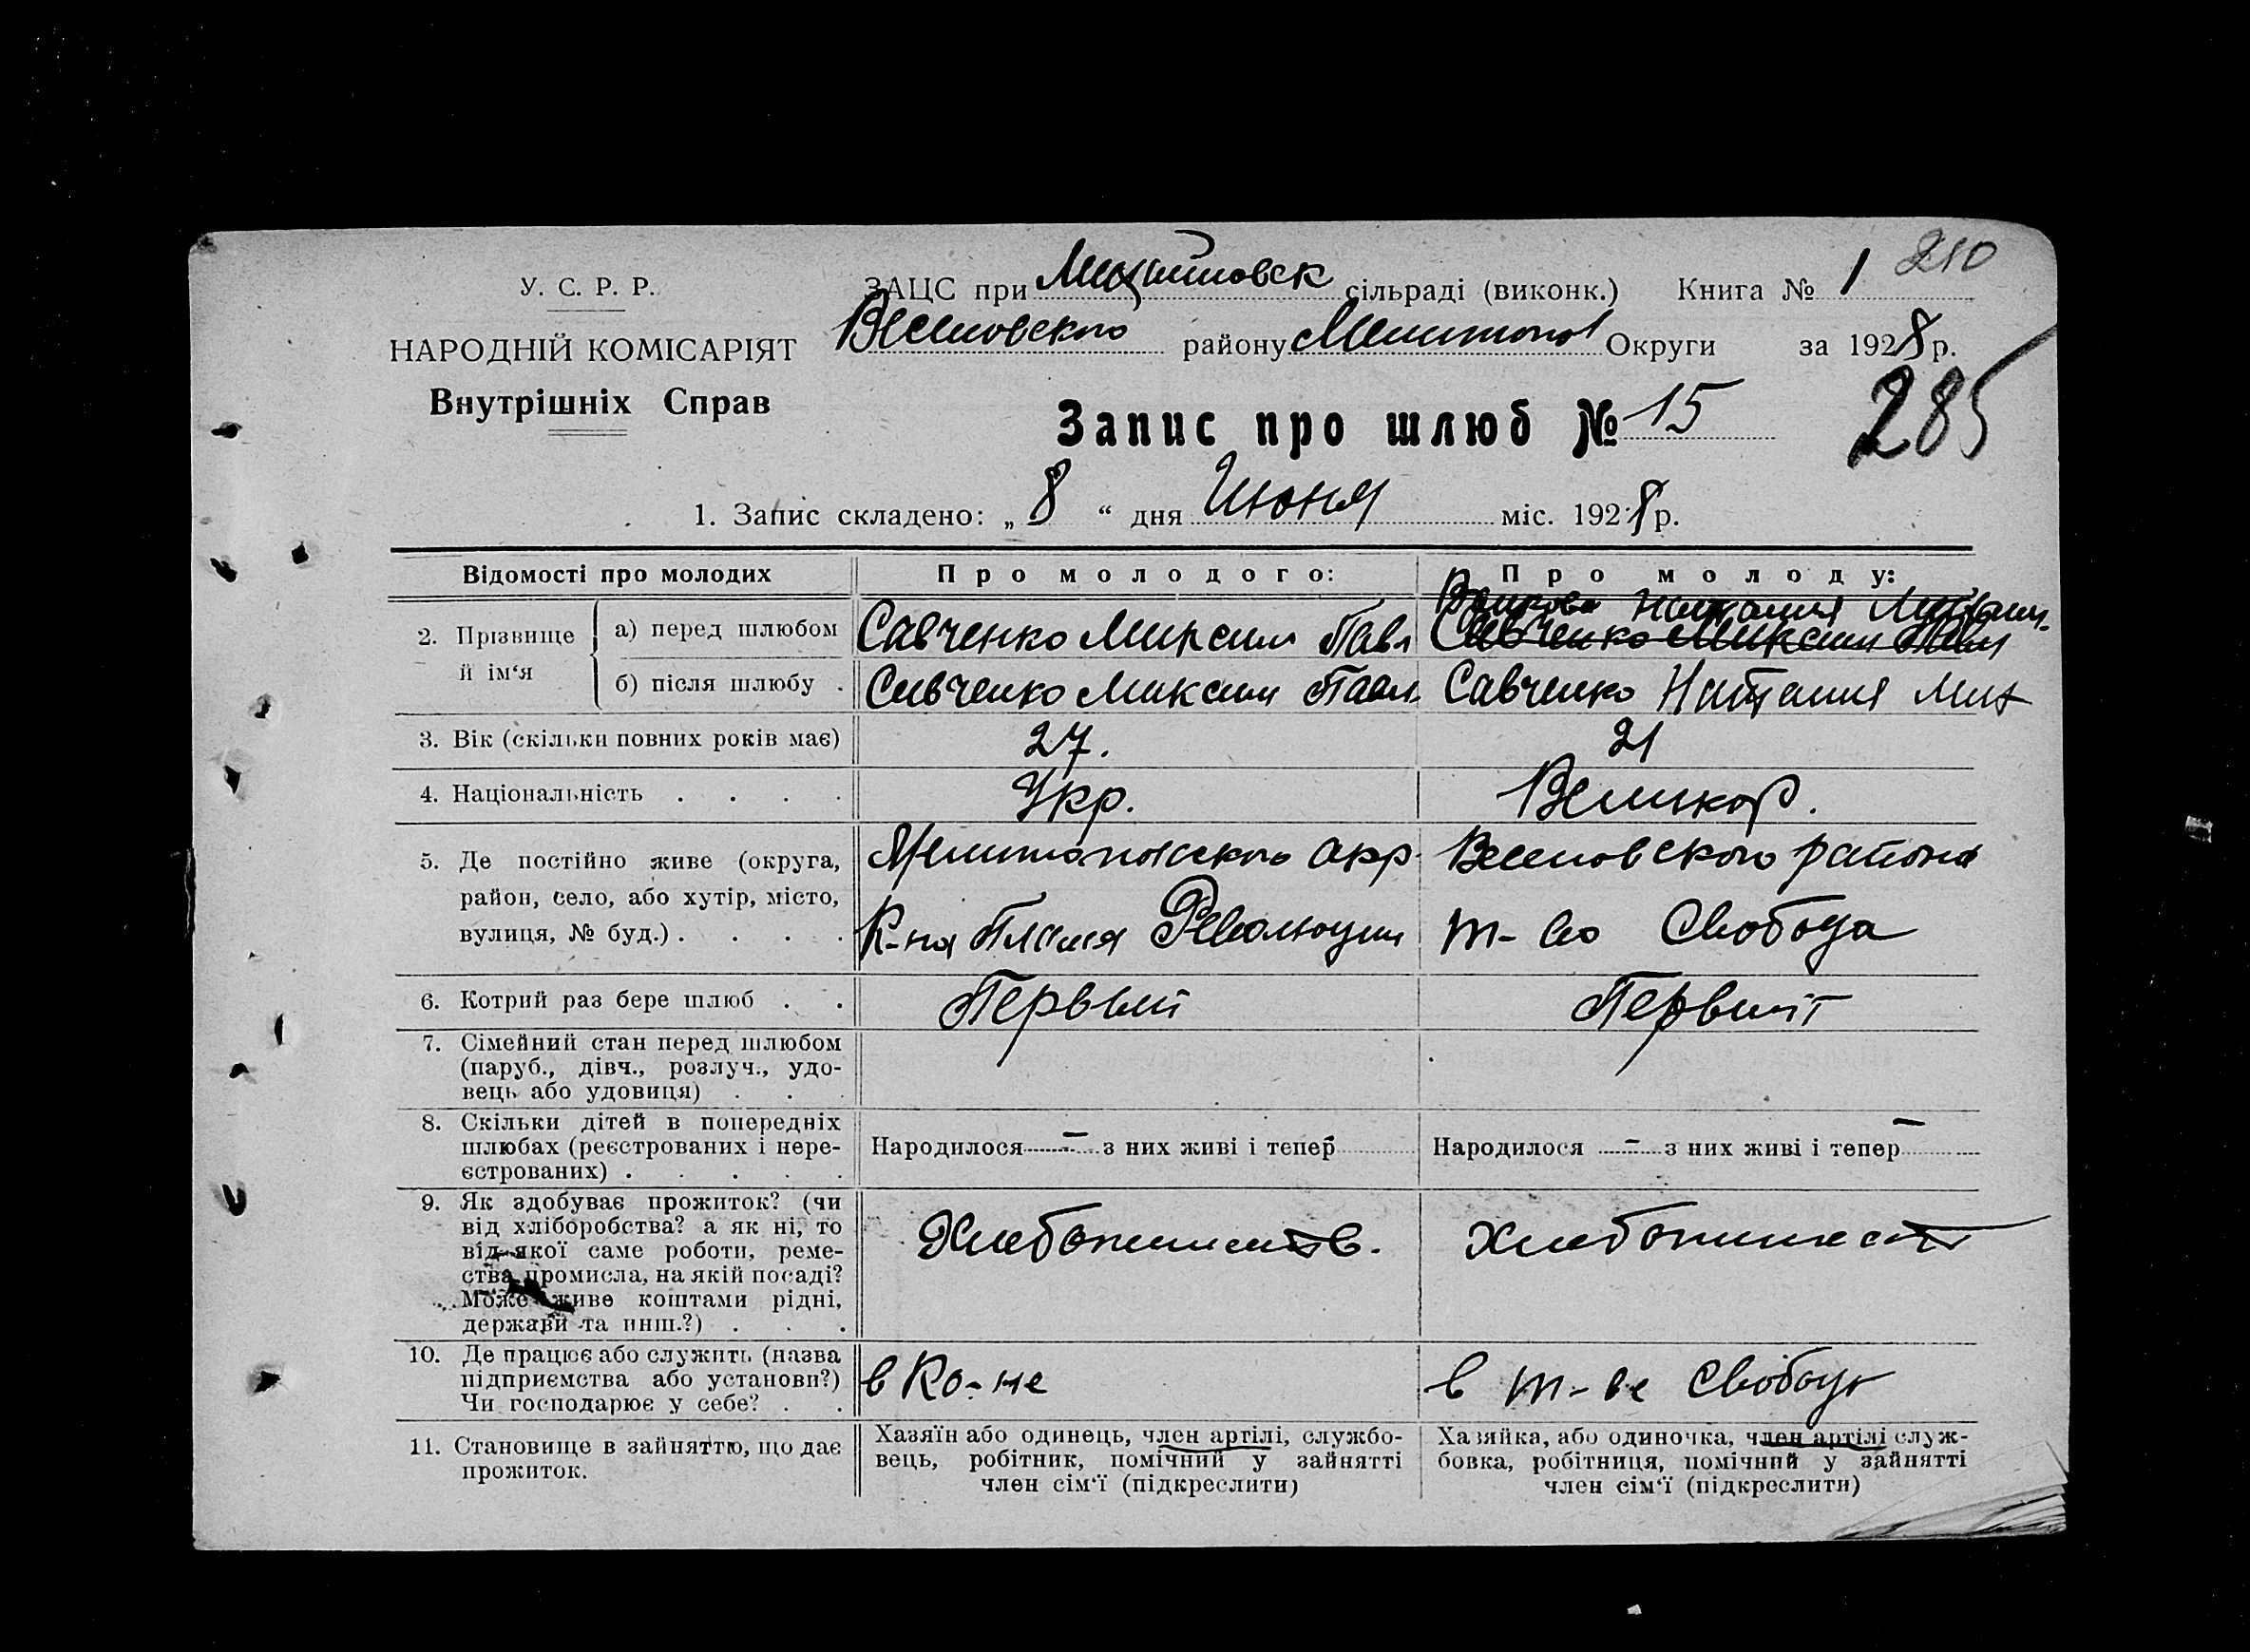 210
У. С. Р. Р.
ЗАЦС при сільраді (виконк.) Книга № 1
НАРОДНІЙ КОМІСАРІЯТ
Веселовского району Мелитопол Округи за 1928 р.
Внутрішніх Справ
Запис про шлюб № 15
285
1. Запис складено: „ 8 “ дня Июня міс. 1928 р.
Відомості про молодих
Про молодого:
Про молоду:
2. Прізвище й ім‘я
а) перед шлюбом
Савченко Максим Павл
Наталия
Савченко Максим Павл
б) після шлюбу .
Савченко Максим Павл.
Савченко Наталия Мих
3. Вік (скільки повних років має)
27.
21
4. Національність . . . .
Укр.
Великор.
5. Де постійно живе (округа,
район, село, або хутір, місто,
вулиця, № буд.) . . . .
Мелитопольского окр.
К-на Пламя Революции
Веселовского района
т-во Свобода
6. Котрий раз бере шлюб . .
Первый
Первый
7. Сімейний стан перед шлюбом
(паруб., дівч., розлуч., удо-
вець або удовиця) . .
8. Скільки дітей в попередніх
шлюбах (реєстрованих і нере-
єстрованих) . . . . .
Народилося – з них живі і тепер
Народилося – з них живі і тепер –
9. Як здобуває прожиток? (чи
від хліборобства? а як ні, то
від якої саме роботи, реме-
ства промисла, на якій посаді?
Може живе коштами рідні,
держави та инш.?) . . .
Хлебопашеств.
Хлебопашест
10. Де працює або служить (назва
підприємства або установи?)
Чи господарює у себе? . .
в Ко-не
в т-ве Свобода
11. Становище в зайняттю, що дає
прожиток.
Хазяїн або одинець, член артілі, службо-
вець, робітник, помічний у зайнятті
член сім‘ї (підкреслити)
Хазяйка, або одиночка, член артілі служ-
бовка, робітниця, помічний у зайнятті
член сім‘ї (підкреслити)